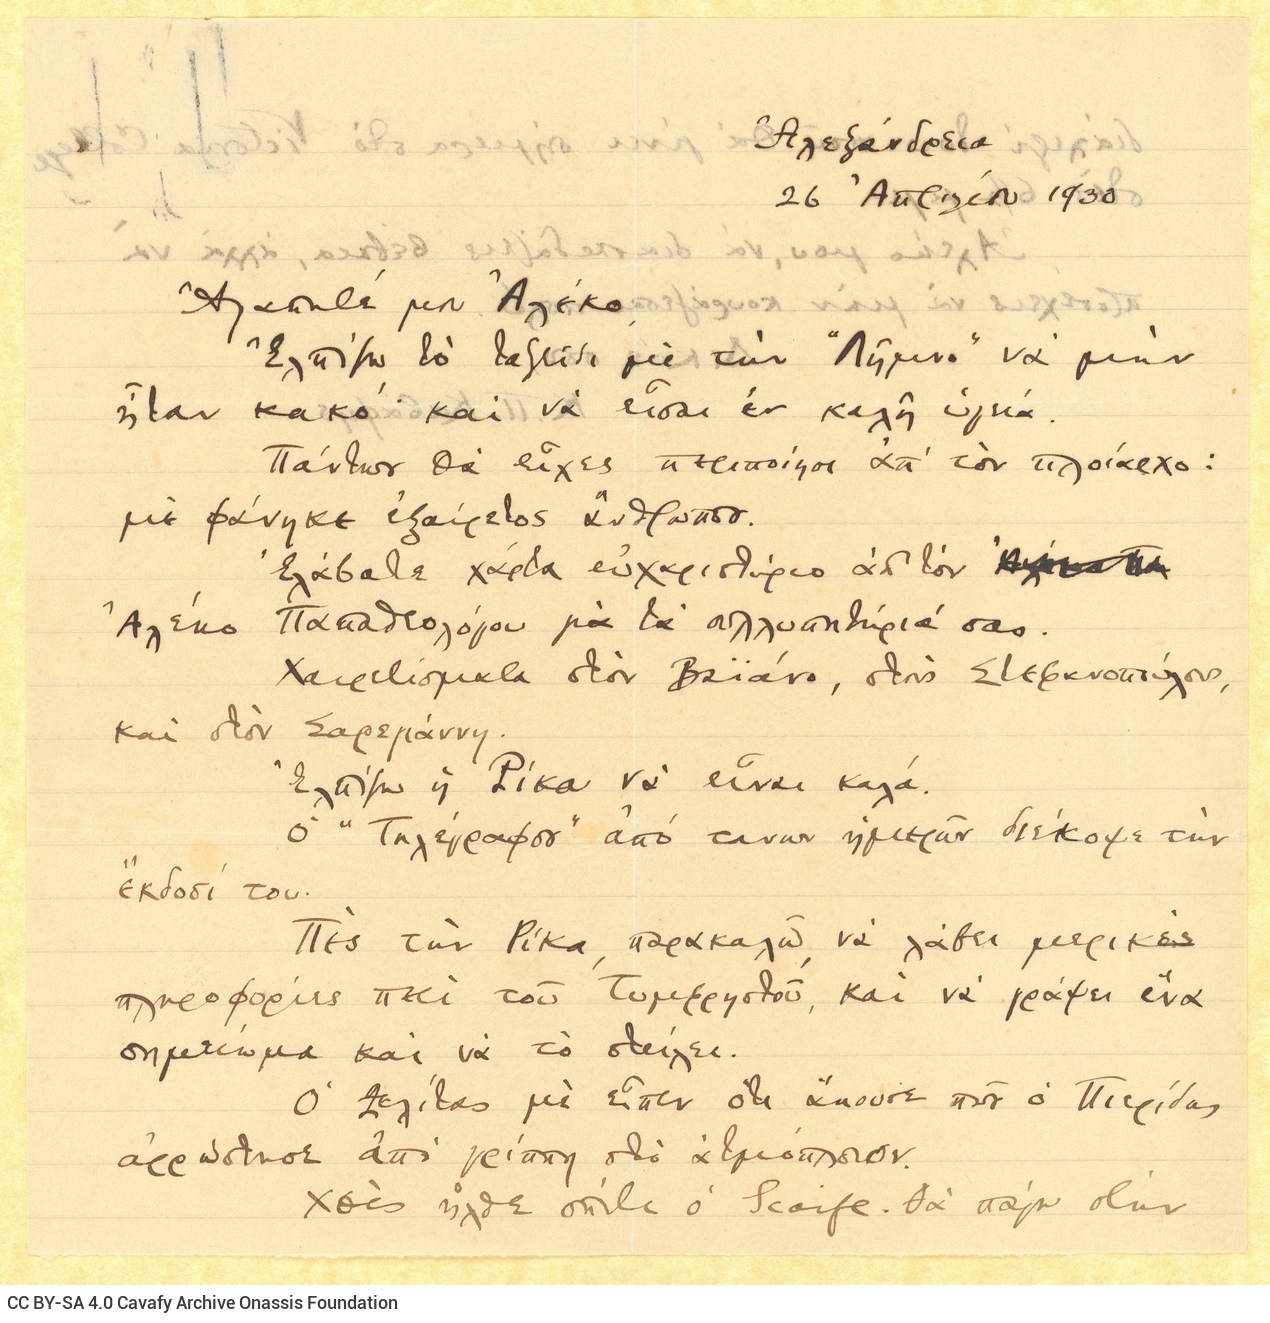 Ἀλεξάνδρεια
26 Ἀπριλίου 1930
Ἀγαπητέ μου Ἀλέκο,
Ἐλπίζω τὸ ταξεῖδι μὲ τὴν "Λῆμνο" νὰ μὴν
ἦταν κακό· καὶ νὰ εἶσαι ἐν καλῇ ὑγείᾳ.
Πάντων θὰ εἶχες περιποίησι ἀπ' τὸν πλοίαρχο:
μὲ φάνηκε ἐξαίρετος ἄνθρωπος.
Ἐλάβατε χάρτα εὐχαριστήριο ἀπ' τὸν
Ἀλέκο Παπαθεολόγου γιὰ τὰ συλλυπητήριά σας.
Χαιρετίσματα στὸν Βαϊάνο, στοὺς Στεφανοπούλους,
καὶ στὸν Σαρεγιάννη.
Ἐλπίζω ἡ Ρίκα νὰ εἶναι καλά.
Ὁ "Τηλέγραφος" ἀπό τινων ἡμερῶν διέκοψε τὴν
ἔκδοσί του.
Πὲς τὴν Ρίκα, παρακαλῶ, νὰ λάβει μερικὲς
πληροφορίες περὶ τοῦ Τυμφρηστοῦ, καὶ νὰ γράψει ἕνα
σημείωμα καὶ νὰ τὸ στείλει.
Ὁ Ζελίτας μὲ εἶπεν ὅτι ἄκουσε πῶς ὁ Πιερίδης
ἀρρώστησε ἀπὸ γρίππη στὸ ἀτμόπλοιον.
Χθὲς ἦλθε σπίτι ὁ Scaife. Θὰ πάγω στὴν
CC BY-SA 4.0 Cavafy Archive Onassis Foundation